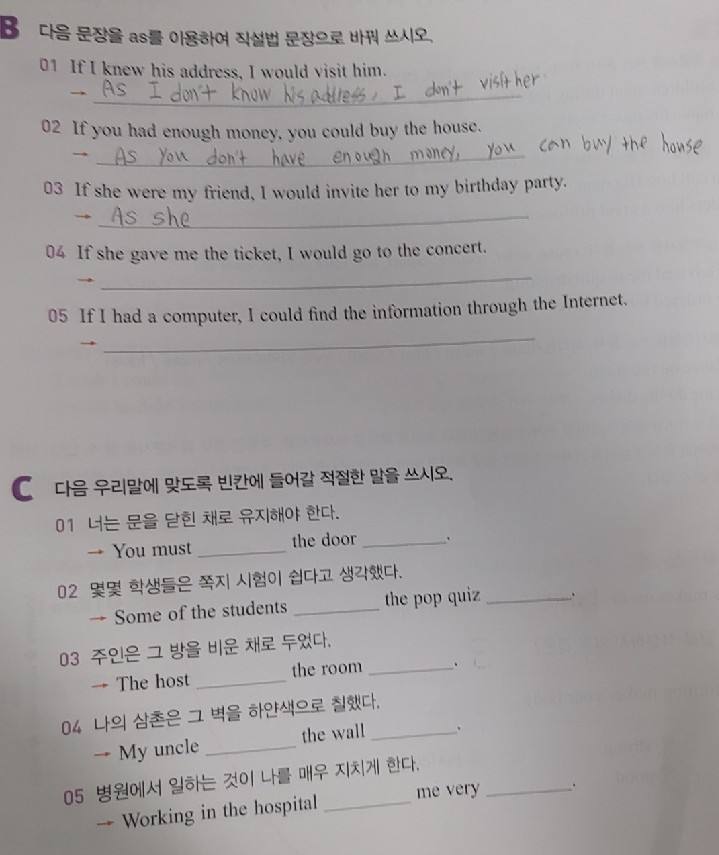 B 다음 문장을 as를 이용하여 직설법 문장으로 바꿔 쓰시오.
01 If I knew his address, I would visit him.
→ As I don't know his address, I don't visit her.
02 If you had enough money, you could buy the house.
→ As you don't have enough money, you can buy the house
03 If she were my friend, I would invite her to my birthday party.
→ As she
04 If she gave me the ticket, I would go to the concert.
→
05 If I had a computer, I could find the information through the Internet.
→
C 다음 우리말에 맞도록 빈칸에 들어갈 적절한 말을 쓰시오.
01 너는 문을 닫힌 채로 유지해야 한다.
→ You must ________ the door ________.
02 몇몇 학생들은 쪽지 시험이 쉽다고 생각했다.
→ Some of the students ________ the pop quiz ________.
03 주인은 그 방을 비운 채로 두었다.
→ The host ________ the room ________.
04 나의 삼촌은 그 벽을 하얀색으로 칠했다.
→ My uncle ________ the wall ________.
05 병원에서 일하는 것이 나를 매우 지치게 한다.
→ Working in the hospital ________ me very ________.